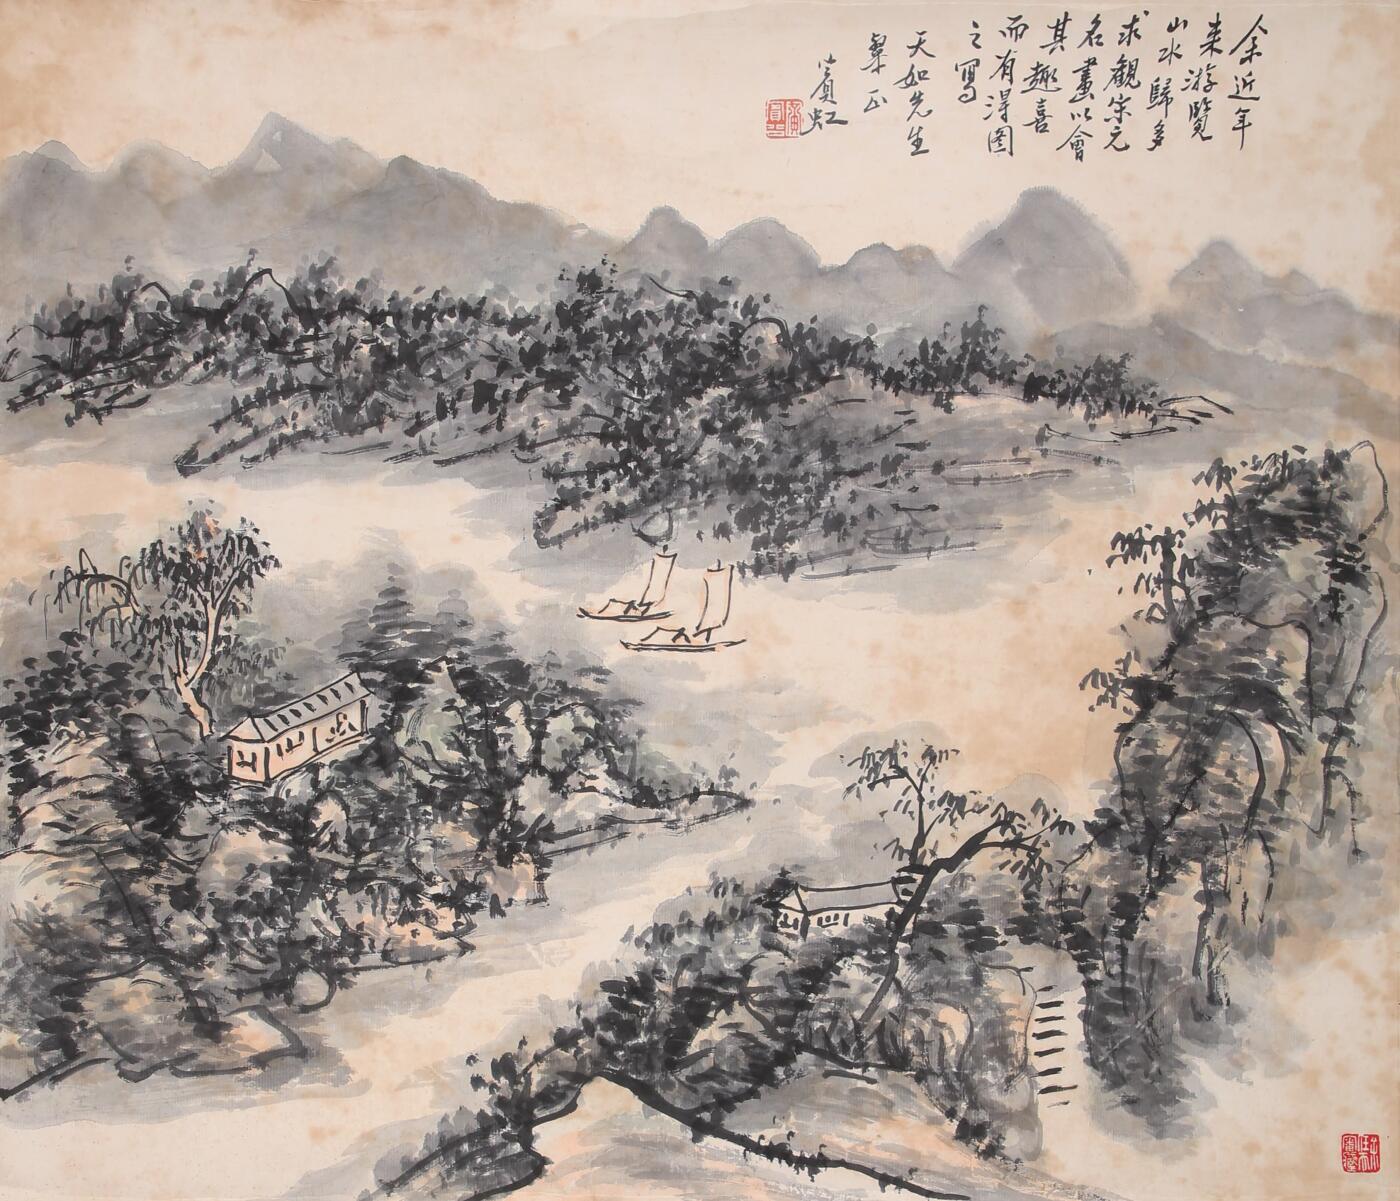 余近年
来游覽
山水歸多
求觀宋元
名畫以會
其趣喜
而有得图
之寫
天如先生
粲正
賓虹